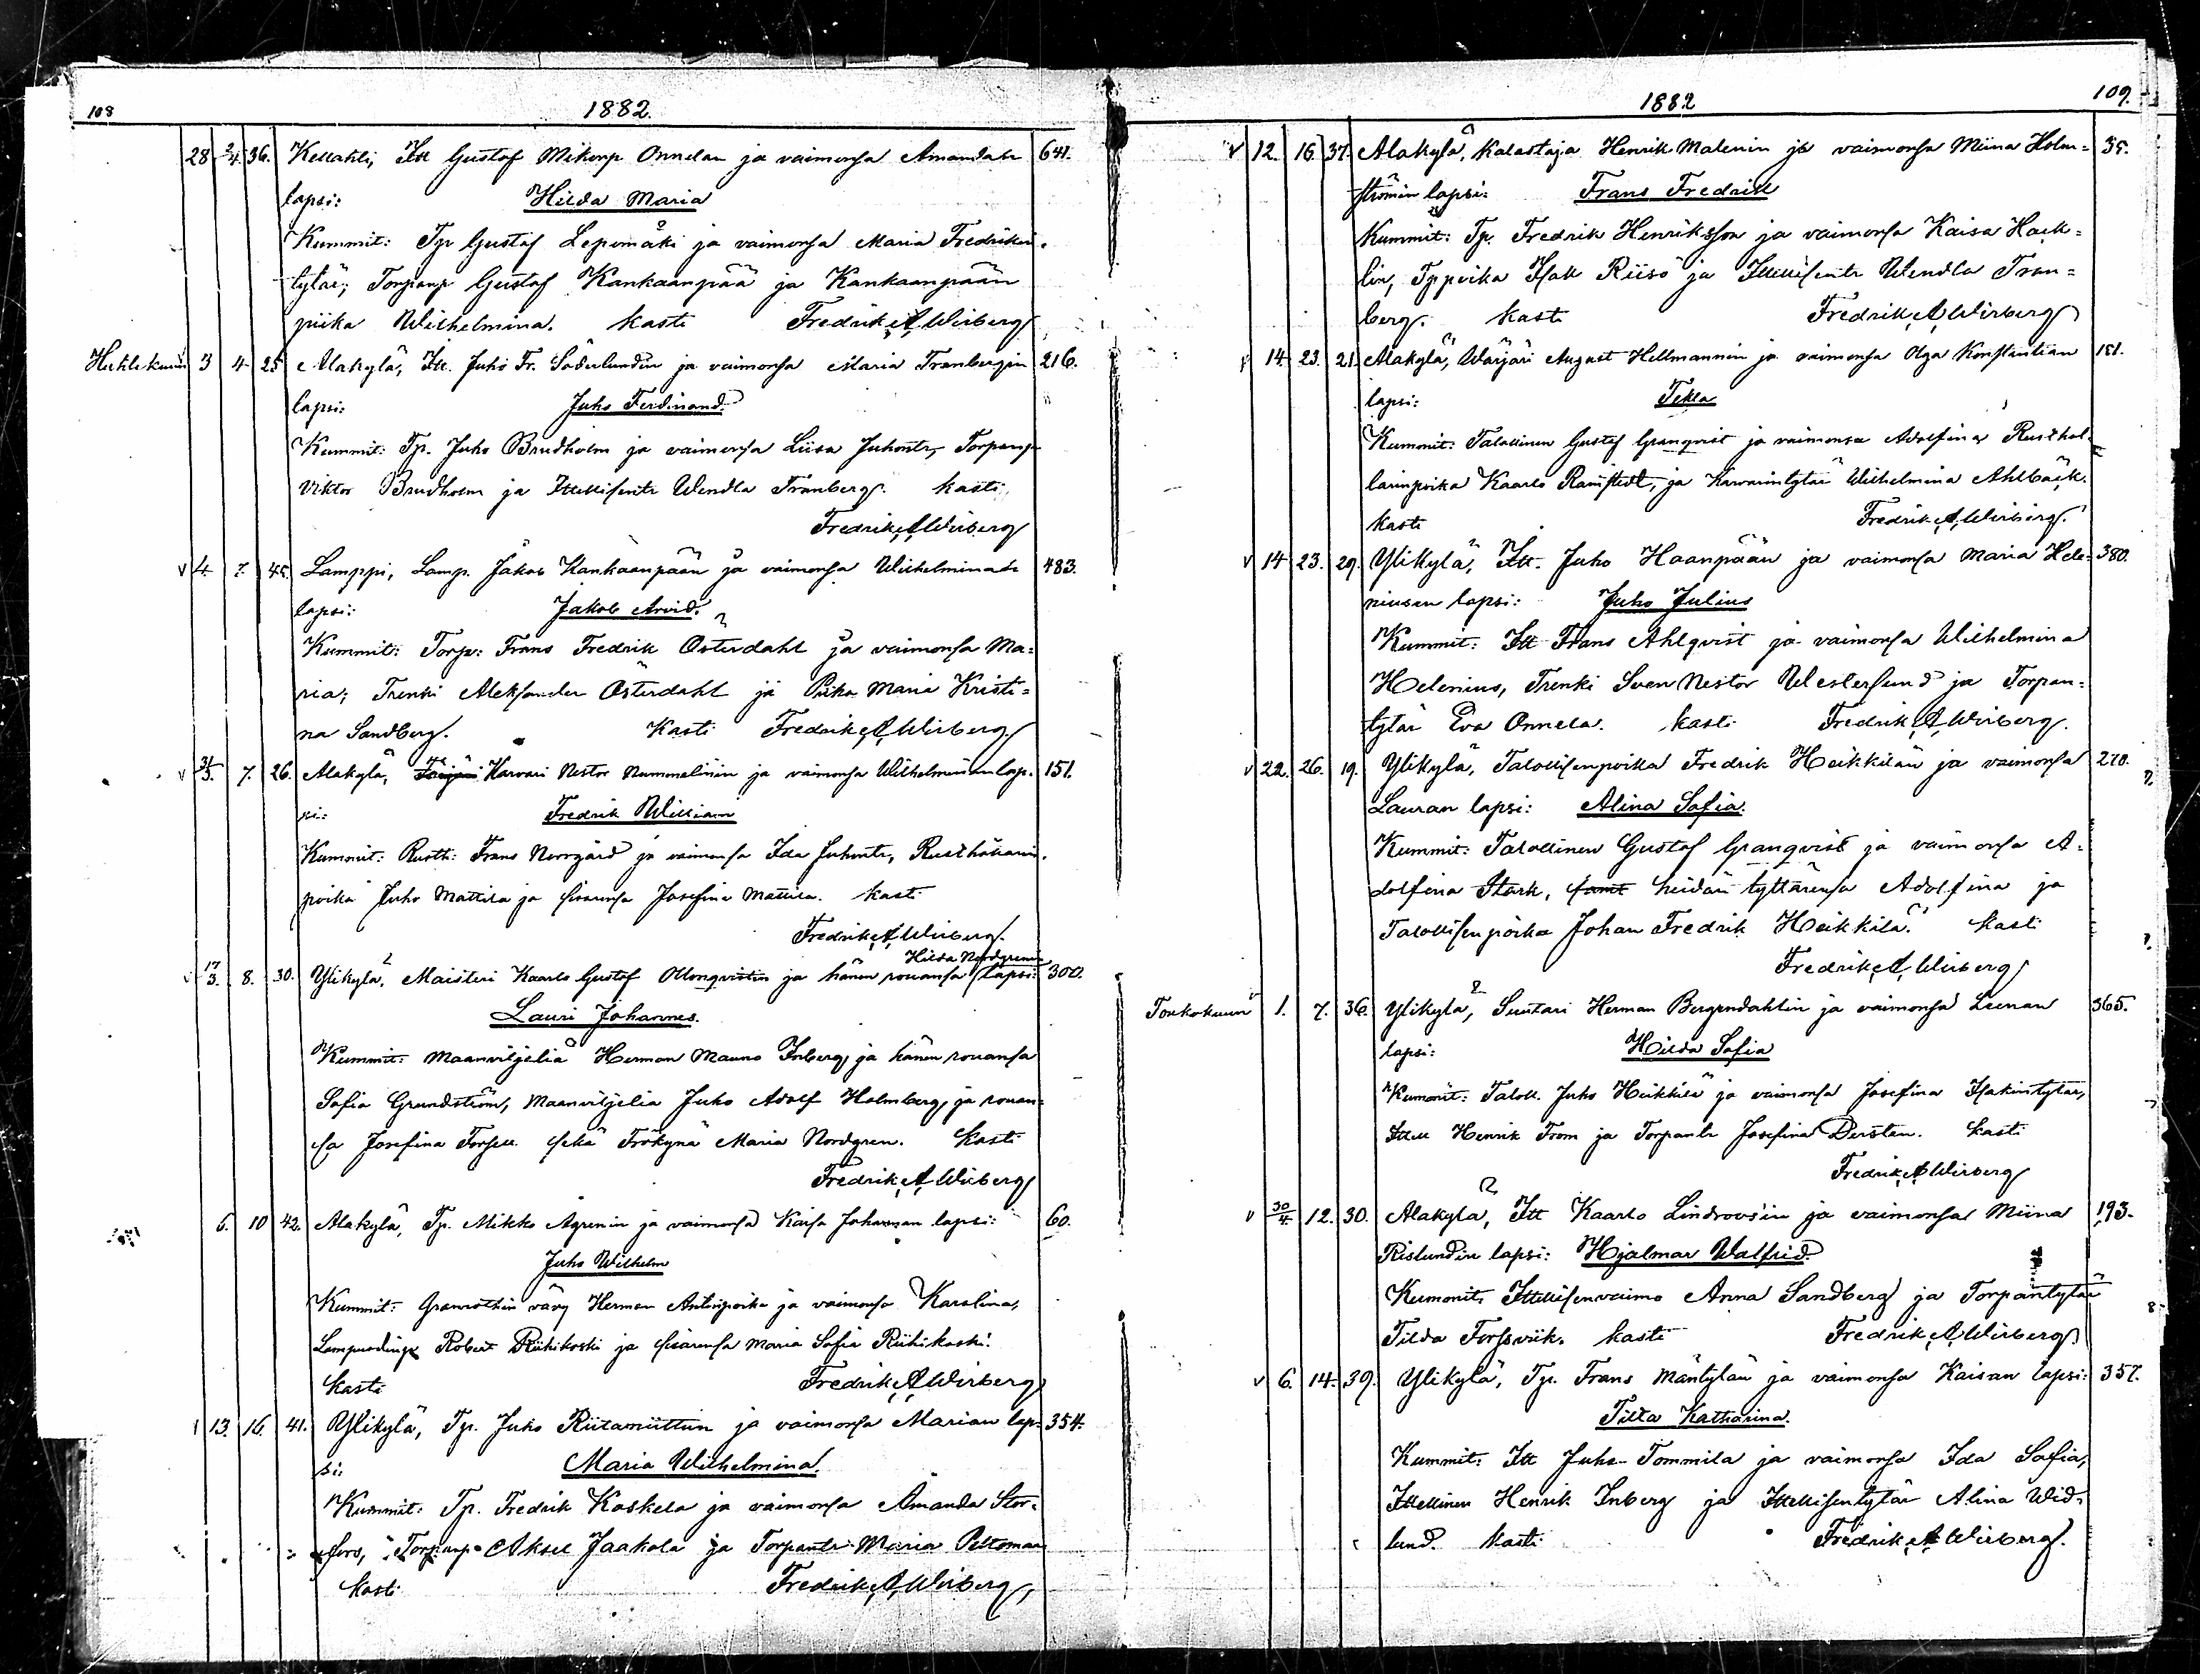 108
1882.
28 2/4 36. Kellahti, Itt Gustaf Mikonp Onnelan ja vaimonsa Amandan 641.
lapsi: Hilda Maria
Kummit: Tp Gustaf Lepomäki ja vaimonsa Maria Fredriken-
tytär; Torpanp Gustaf Kankaanpää ja Kankaanpään
piika Wilhelmina. Kasti Fredrik A Wirberg
Huhtikuun 3 4 25 Alakylä, Itt. Juho Fr. Söderlundin ja vaimonsa Maria Tranbergin 216.
lapsi: Juho Ferdinand.
Kummit: Tp. Juho Brudholm ja vaimonsa Liisa Juhontr, Torpanp
Viktor Brudholm ja Itellisentr Wendla Tranberg. Kasti
Fredrik A Wirberg
v 4. 7. 45. Lamppi, Lamp. Jakob Kankaanpään ja vaimonsa Wilhelminan 483.
lapsi: Jakob Arvid.
Kummit: Torp: Frans Fredrik Österdahl ja vaimonsa Ma=
ria; Trenki Aleksander Österdahl ja Piika Maria Kristi=
na Sandberg. Kasti Fredrik A Wirberg
v 31/3. 7. 26. Alakylä, Karvari Nestor Nummelinin ja vaimonsa Wilhelminan lap- 151.
si: Fredrik William
Kummit: Rusth: Frans Norrgård ja vaimonsa Ida Juhontr, Rusthollarin-
poika Juho Mattila ja sisarensa Josefina Mattila. Kasti
Fredrik A Wirberg.
Hilda Nordgrenin
v 17/3. 8. 30. Ylikylä, Maisteri Kaarlo Gustaf Ollonqvistin ja hänen rouansa lapsi: 300.
Lauri Johannes.
Kummit: Maanviljeliä Herman Mauno Inberg, ja hänen rouansa
Sofia Grundström, Maanviljelia Juho Adolf Holmberg, ja rouan-
sa Josefina Forsell sekä Frökynä Maria Nordgren. Kasti
Fredrik A Wirberg
6. 10 42. Alakylä, Tp. Mikko Agrenin ja vaimonsa Kaisa Johannan lapsi: 60.
Juho Wilhelm
Kummit: Granrothin vävy Herman Antinpoika ja vaimonsa Karolina,
Robert Riihikoski ja sisarensa Maria Sofia Riihikoski.
Kasti Fredrik A Wirberg
13. 16. 41. Ylikylä, Tp. Juho Riitaniittun ja vaimonsa Marian lap- 354.
si: Maria Wilhelmina.
Kummit: Tp. Fredrik Koskela ja vaimonsa Amanda Stor-
fors, Torpanp Aksel Jaakola ja Torpantr Maria Peltoman
Kasti Fredrik A Wirberg,
1882
109.
v 12. 16. 37. Alakylä, Kalastaja Henrik Malenin ja vaimonsa Miina Holm= 35.
strömin lapsi: Frans Fredrik
Kummit: Tp. Fredrik Henriksson ja vaimonsa Kaisa Hack=
lin, Tp poika Isak Riiso ja Itellisentr Wendla Tran=
berg. Kasti Fredrik A Wirberg
v 14. 23. 21. Alakylä, Värjäri August Hellmannin ja vaimonsa Olga Konstantian 151.
lapsi: Tekla
Kummit: Talollinen Gustaf Granqvist ja vaimonsa Adolfina Rusthol-
larinpoika Kaarlo Ramstedt, ja Karvarintytär Wilhelmina Ahlbäck.
Kasti Fredrik A Wirberg.
v 14 23. 29. Ylikylä, Itt. Juho Haanpään ja vaimonsa Maria Hele- 380.
niusen lapsi: Juho Julius
Kummit: Itt Frans Ahlqvist ja vaimonsa Wilhelmina
Helenius, Trenki Sven Nestor Westerlund ja Torpan=
tytär Eva Onnela. Kasti Fredrik A Wirberg.
v 22. 26. 19. Ylikylä, Talollisenpoika Fredrik Heikkilän ja vaimonsa 270.
Lauran lapsi: Alina Sofia.
Kummit: Talollinen Gustaf Granqvist ja vaimonsa A-
dolfina Stark, samt heidän tyttärensa Adolfina ja
Talollisenpoika Johan Fredrik Heikkilä. Kasti
Fredrik A Wirberg
Toukokuun 1. 7. 36. Ylikylä, Suutari Herman Bergendahlin ja vaimonsa Leenan 365.
lapsi: Hilda Sofia
Kummit: Taloll. Juho Heikkilä ja vaimonsa Josefina Isakintytär,
Itell Henrik From ja Torpantr Josefina Dersten. Kasti
Fredrik A Wirberg
v 30/4. 12. 30. Alakylä, Itt Kaarlo Lindroosin ja vaimonsa Miina 193.
Rislundin lapsi: Hjalmar Walfrid.
Kummit. Itellisenvaimo Anna Sandberg ja Torpantytär
Tilda Forsvik. Kasti Fredrik A Wirberg
v 6. 14. 39. Ylikylä, Tp. Frans Mäntylän ja vaimonsa Kaisan lapsi: 357.
Tilta Katharina.
Kummit: Itt Juho Tommila ja vaimonsa Ida Sofia,
Itellinen Henrik Inberg ja Itellisentytär Alina Wid-
lund. Kasti Fredrik A Wirberg.